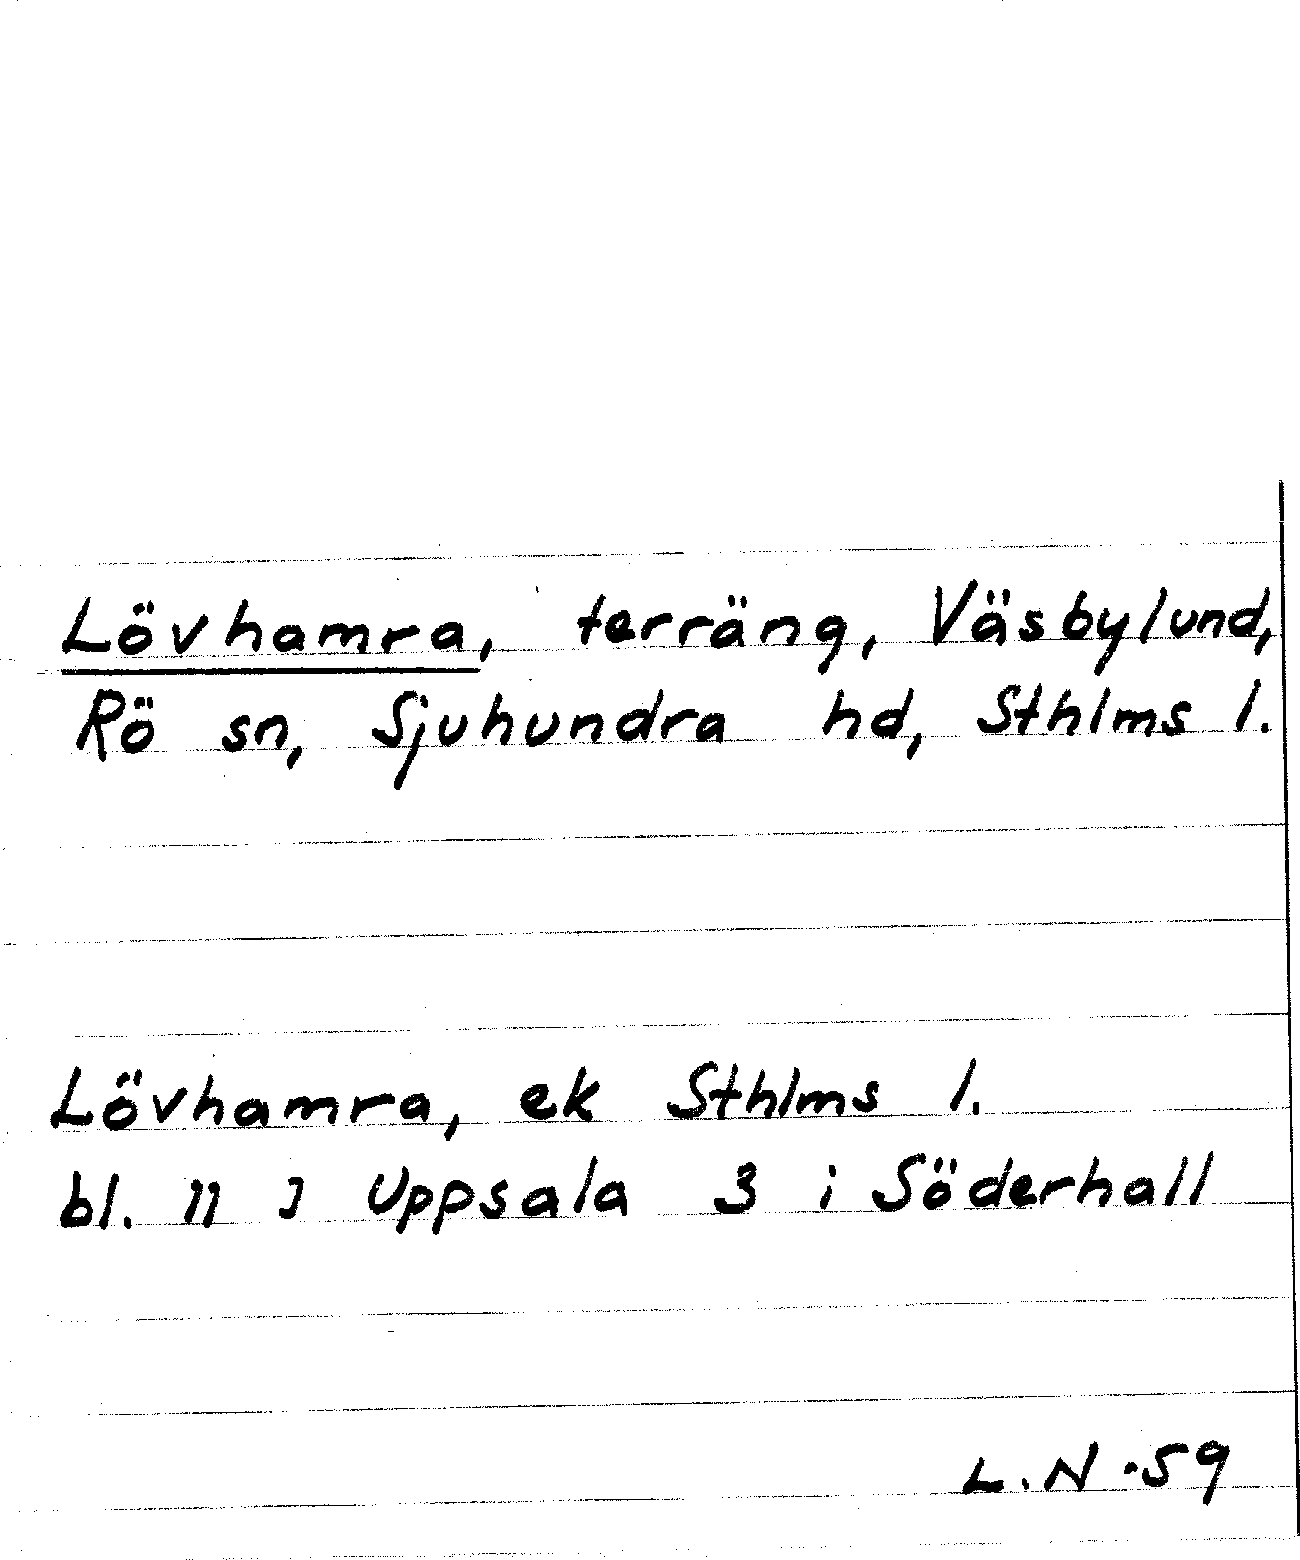 Lövhamra, terräng, Väsbylund,
Rö sn, Sjuhundra hd, Sthlms l.
Lövhamra, ek Sthlms l.
bl. 11 J Uppsala 3 i Söderhall
L.N -59